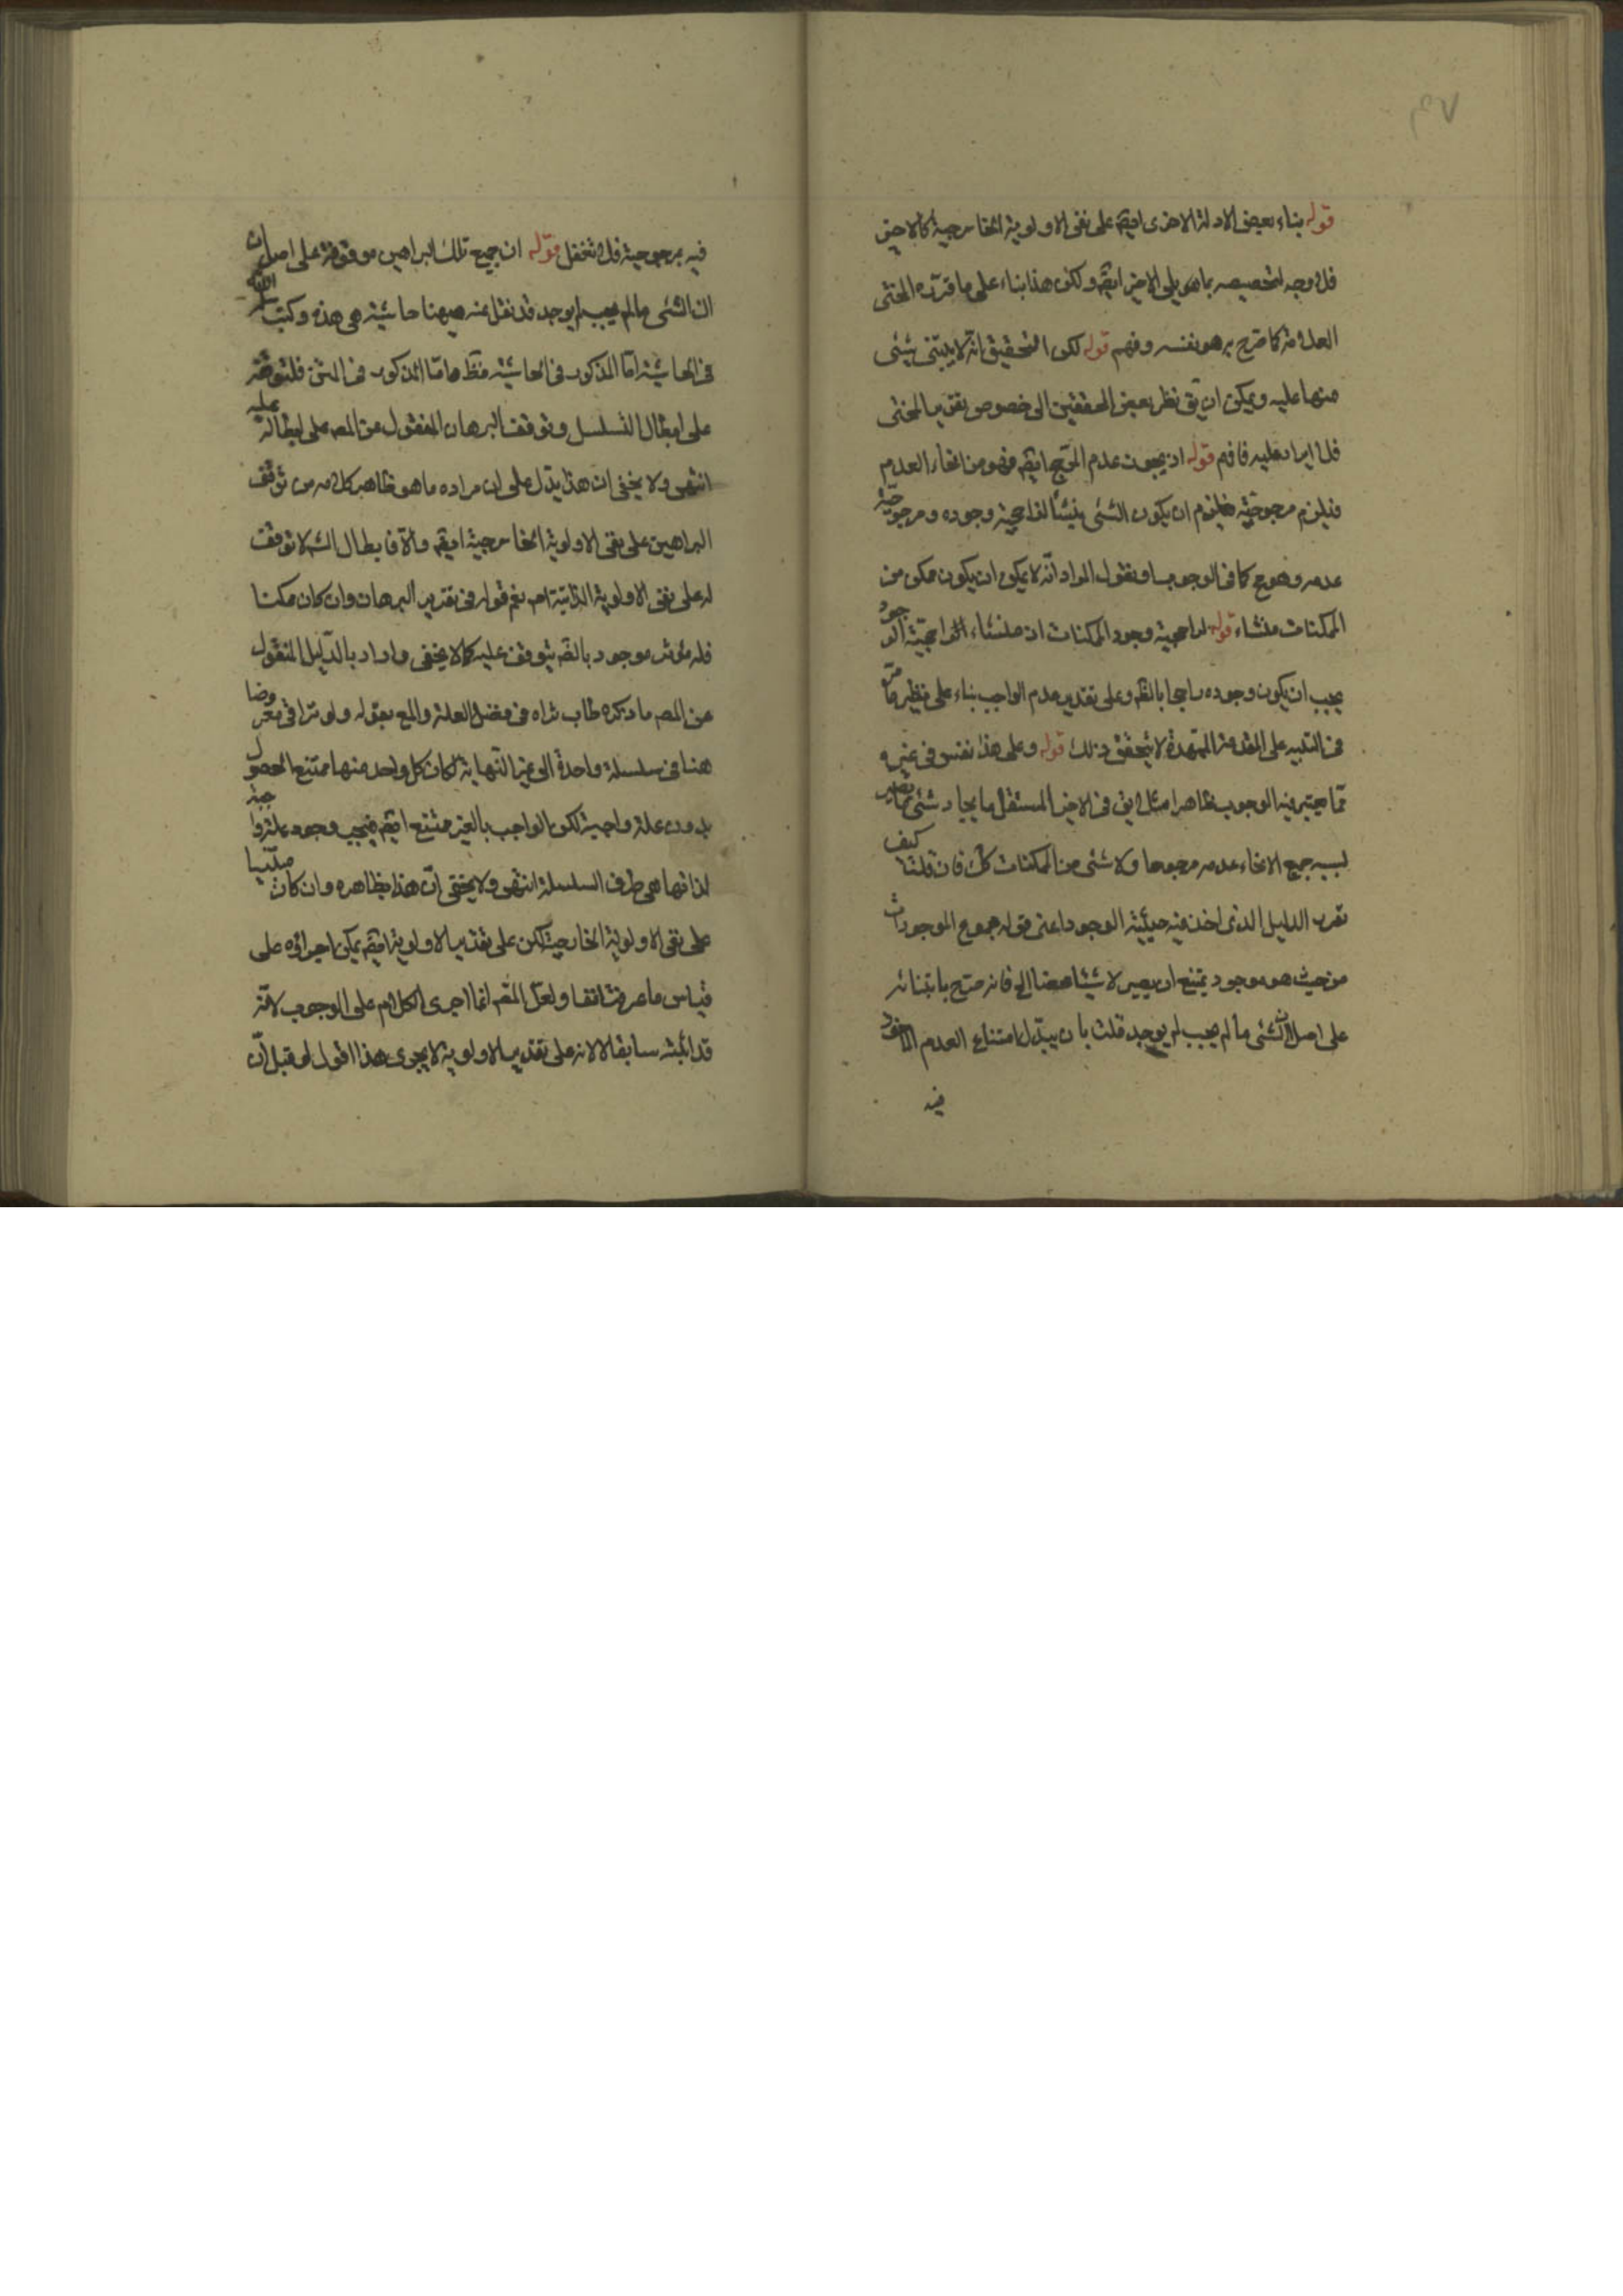 قوله بناء بعض الادلة الاخرى ايضم على نفى الاولوية الخارجية كالاخير
فلا وجه لتخصيصه بما هو يلى الاخير ايضم ولكن هذا بناء على ما قرره المحشى
العلامة كما صرح به هو نفسه وفهم قوله لكن التحقيق انه لا يبتنى شئ
منها عليه ويمكن ان يق نظر بعض المحققين الى خصوص تقرير المحشى
فلا ايراد عليه فافهم قوله اذ يجوز عدم ايضم فهو من انحاء العدم
فيلزم مرجوحيته فيلزم ان يكون الشئ منشأ لراجحية وجوده ومرجوحية
عدمه وهو مح كما فى الوجوب او نقول المراد انه لا يمكن ان يكون ممكن من
الممكنات منشاء قوله لراجحية وجود الممكنات اذ منشاء الراجحية الوجود
يجب ان يكون وجوده راجحا بالنظر وعلى تقدير عدم الواجب بناء على نظير ما مر
فى التنبيه على المقدمة الممهدة لا يتحقق ذلك قوله وعلى هذا نفس فى غيره
مما يعتبر فيه الوجوب ظاهرا مثلا يق فى الاخير المستقل بايجاد شئ ما يصير
بسببه جميع الانحاء عدمه مرجوحا ولا شئ من الممكنات كك فان قلت كيف
تقرر الدليل الذى اخذ فيه حيثية الوجود اعنى قوله مجموع الموجودات
من حيث هو موجود يمتنع ان يصير لا شيئا محضا الخ فانه صرح بابتنائه
على اصل ان الشئ ما لم يجب لم يوجد قلت بان يبدل امتناع العدم
فيه
فيه بمرجوحية فلا تغفل قوله ان جميع تلك البراهين موقوفة على اصل ان
ان الشئ ما لم يجب لم يوجد قد نقل عنه ههنا حاشية هى هذه وكتب
فى الحاشية اما المذكور فى الحاشية فظ واما المذكور فى المتن فلتوقفه
على ابطال التسلسل وتوقف البرهان المنقول عن المصم على ابطاله عليه
انتهى ولا يخفى ان هذا يدل على ان مراده ما هو ظاهر كلامه من توقف
البراهين على نفى الاولوية الخارجية ايضم والا فابطال التسم لا توقف
له على نفى الاولوية الذاتية نعم قوله فى تقرير البرهان وان كان ممكنا
فله مؤثر موجود بالضم يتوقف عليه كما لا يخفى واراد بالدليل المنقول
عن المصم ما ذكره طاب ثراه فى فصل العلة والمع بقوله ولو تراقى معروضا
هنا فى سلسلة واحدة الى غير النهاية لكان كل واحد منها ممتنع الحصول
بدون علة واجبة لكن الواجب بالغير ممتنع ايضم فيجب وجود علة واجبة
لذاتها هى طرف السلسلة انتهى ولا يخفى ان هذا بظاهره وان كان مبتنيا
على نفى الاولوية الخارجية لكن على تقدير الاولوية ايضم يمكن اجراؤه على
قياس ما عرفت انفا ولعل المصم انما اجرى الكلام على الوجوب لانه
قد اثبته سابقا لا لانه على تقدير الاولوية لا يجرى هذا اقول لو قيل ان